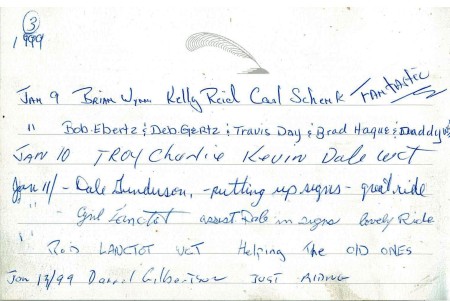 3
1999
Jan 9 Brian Wynn Kelly Reid Carl Schenk Fantastic
" Bob Ebertz & Deb Gertz & Travis Day & Brad Hague & Daddy
JAN 10 TROY Charlie Kevin Dale WCT
Jan 11/ - Dale Gunduson, - putting up signs - great ride
" Lanctot assist Dale in signs lovely Ride
" ROD LANCTOT VCT Helping The OLD ONES
Jan 13/99 Gilbertson JUST RIDING